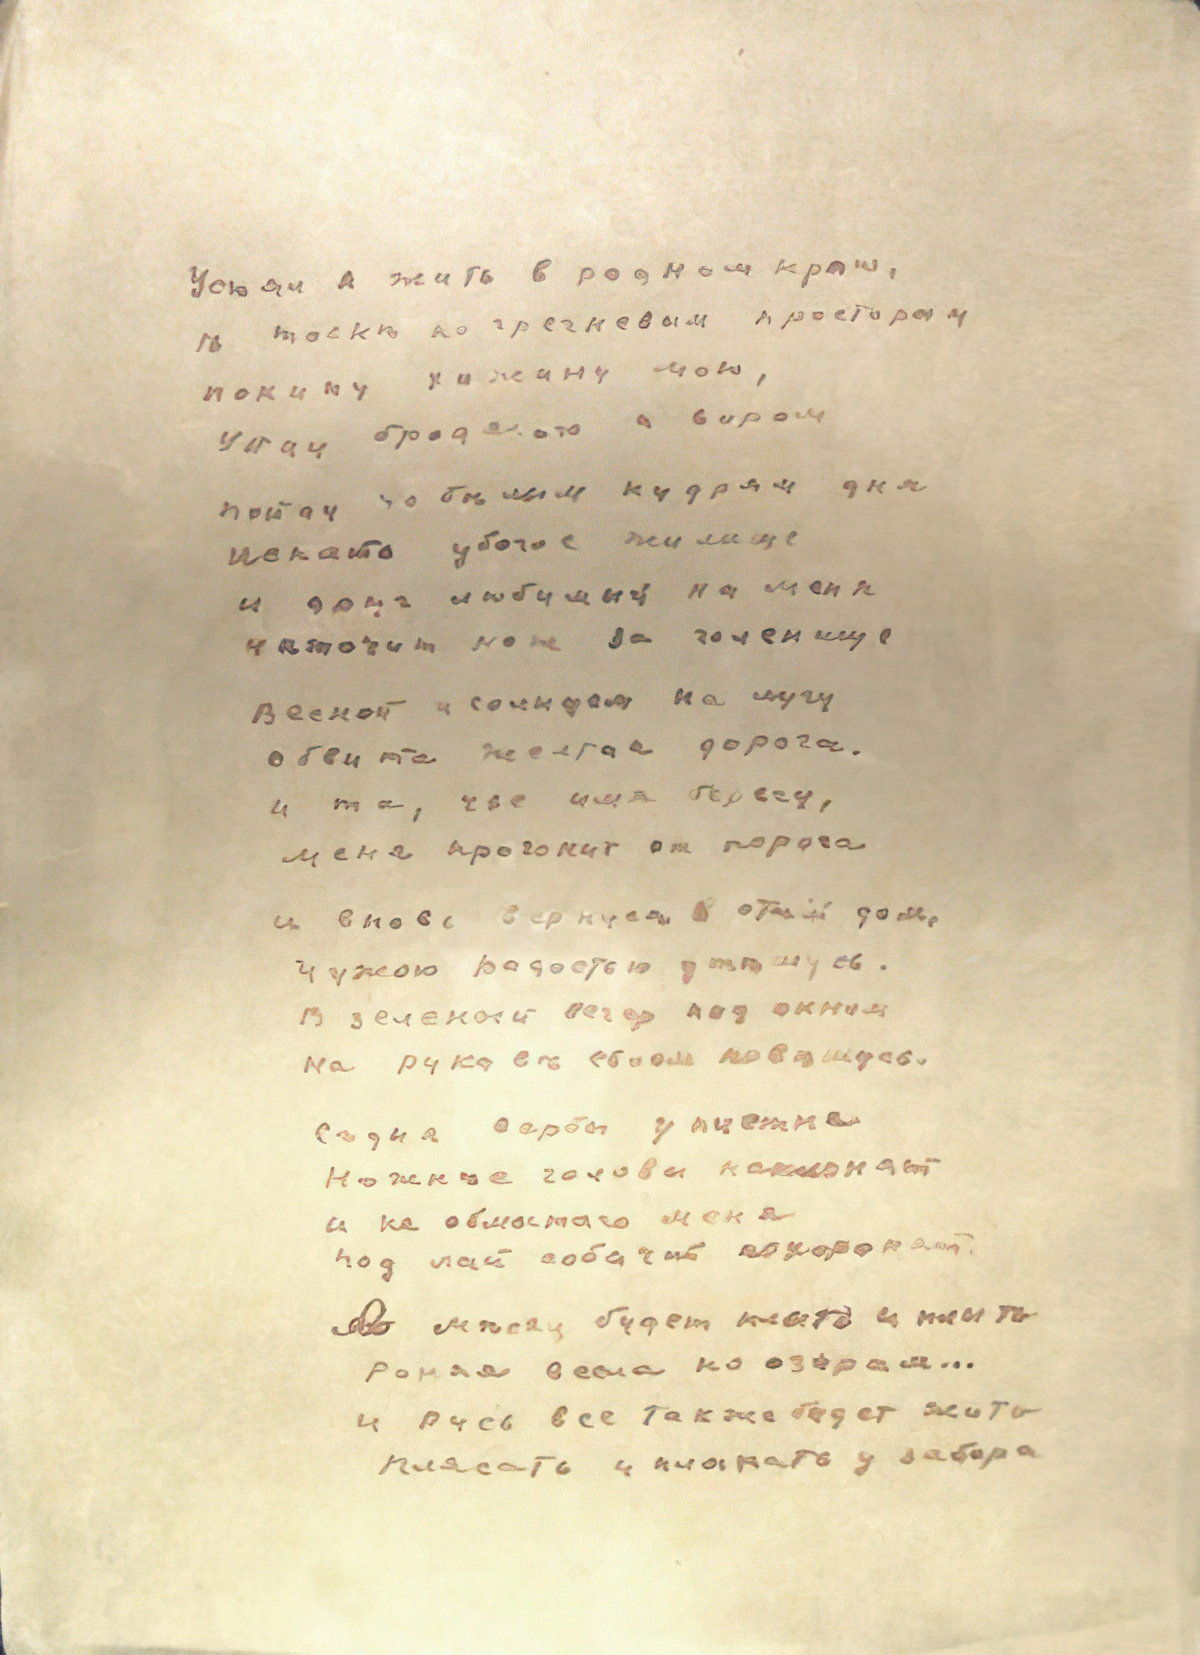 Устал я жить в родном краю,
В тоскѣ по гречневым просторам
покину хижину мою,
Уйду бродягою и вором
пойду по бѣлым кудрям дня
Искать убогое жилище
и друг любимый на меня
наточит нож за голенище
Весной и солнцем на лугу
обвита желтая дорога.
и та, чье имя берегу,
меня прогонит от порога
и вновь вернуся в отчий дом,
чужою радостью утѣшусь.
В зеленый вечер под окном
на рукавѣ своем повѣшусь.
Сѣдыя вербы у плетня
Нѣжнѣе головы наклонят
и не обмытаго меня
под лай собачий похоронят.
А мѣсяц будет плыть и плыть
роняя весла по озёрам...
и Русь все также будет жить
плясать и плакать у забора